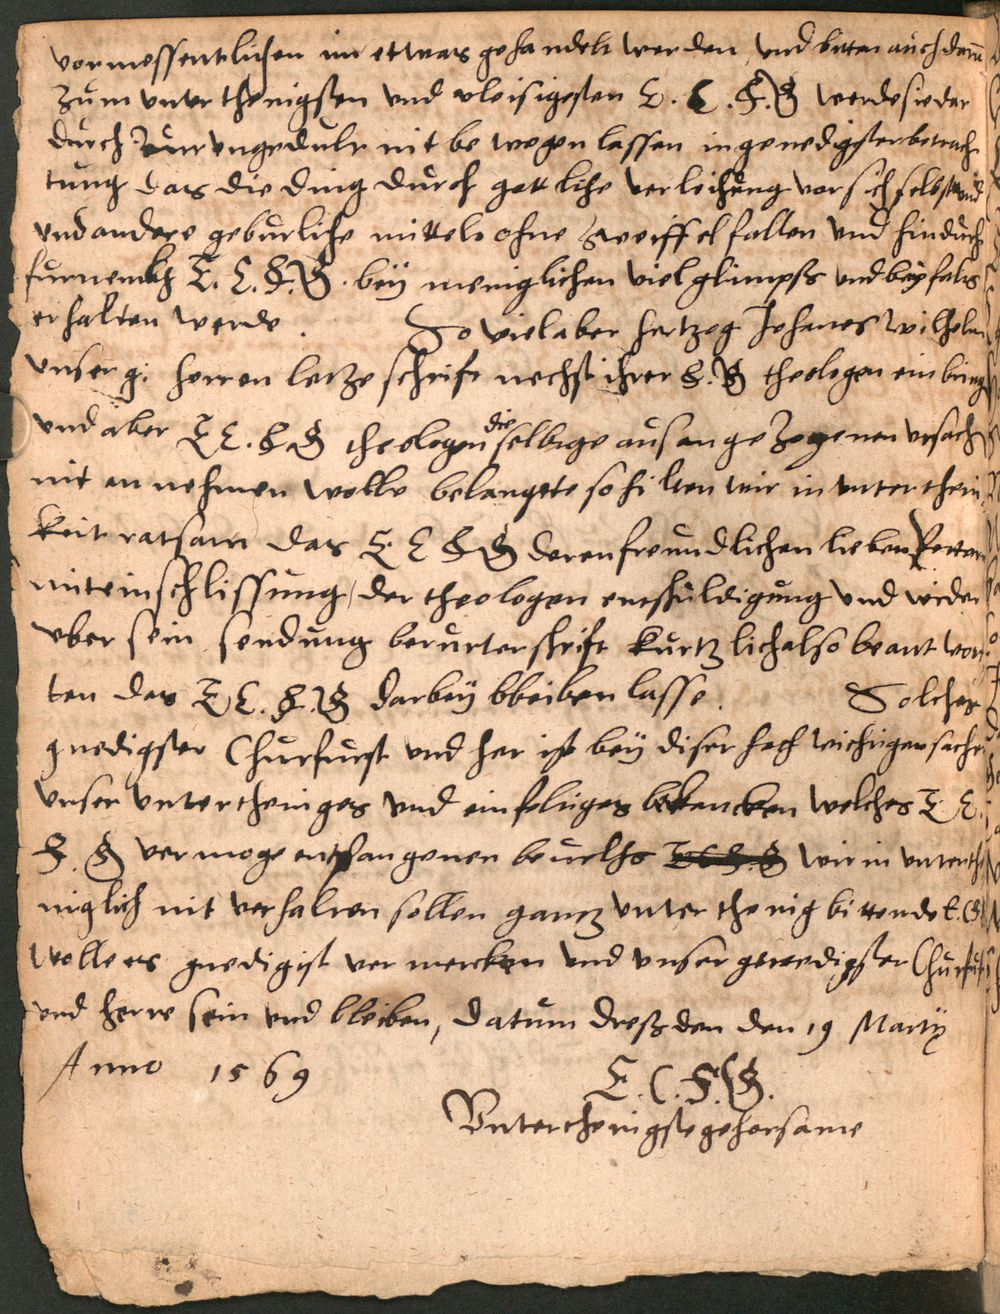 vormessentlichen im etwas gehandelt werden, und bitten auch darū
zum unterthenigsten und vleisigesten E. C. F. G werde sie dar
durch zur ungedult nit bewegen lassen in genedigster betrach
tung das die ding durch gottliche verleihung vor sich selbst und
und andere geburliche mittele ohne zweiffel fallen und hindurch
furnemlich E. C. F. G. bey meniglichen viel glimpfs und beyfals
erhalten werde. So viel aber hertzog Johanes Wilhelm
unser g: herren letze schrift nechst ihrer F. G theologen einbringe
und aber E C. F G theologen die selbige aus angezogenen ursach
nit an nehmen wolle belangete so hilten wir in unterthein
keit ratsam das E C F G deren freundlichen lieben Vettern
mit einschlissung der theologen entschuldigung und wider
uber sein sendung berurter schrift kurtzlich also beantwor
ten das E C. F. G darbey bleiben lasse. Solches
gnedigster Churfurst und her ist bey diser hoch wichtigen sache
unser untertheniges und einfeltiges bedencken welches E C.
F. G vermoge entfangenen bevelhs E C F. G wir in unterthe
niglich nit verhalten sollen gantz unterthenig bittende E. C F
wolle es gnedigist vermercken und unser genedigster Churfust
und herre sein und bleiben, Datum Dreßden den 19 Marty
Anno 1569
E. C. F. G.
Unterthenigste gehorsame